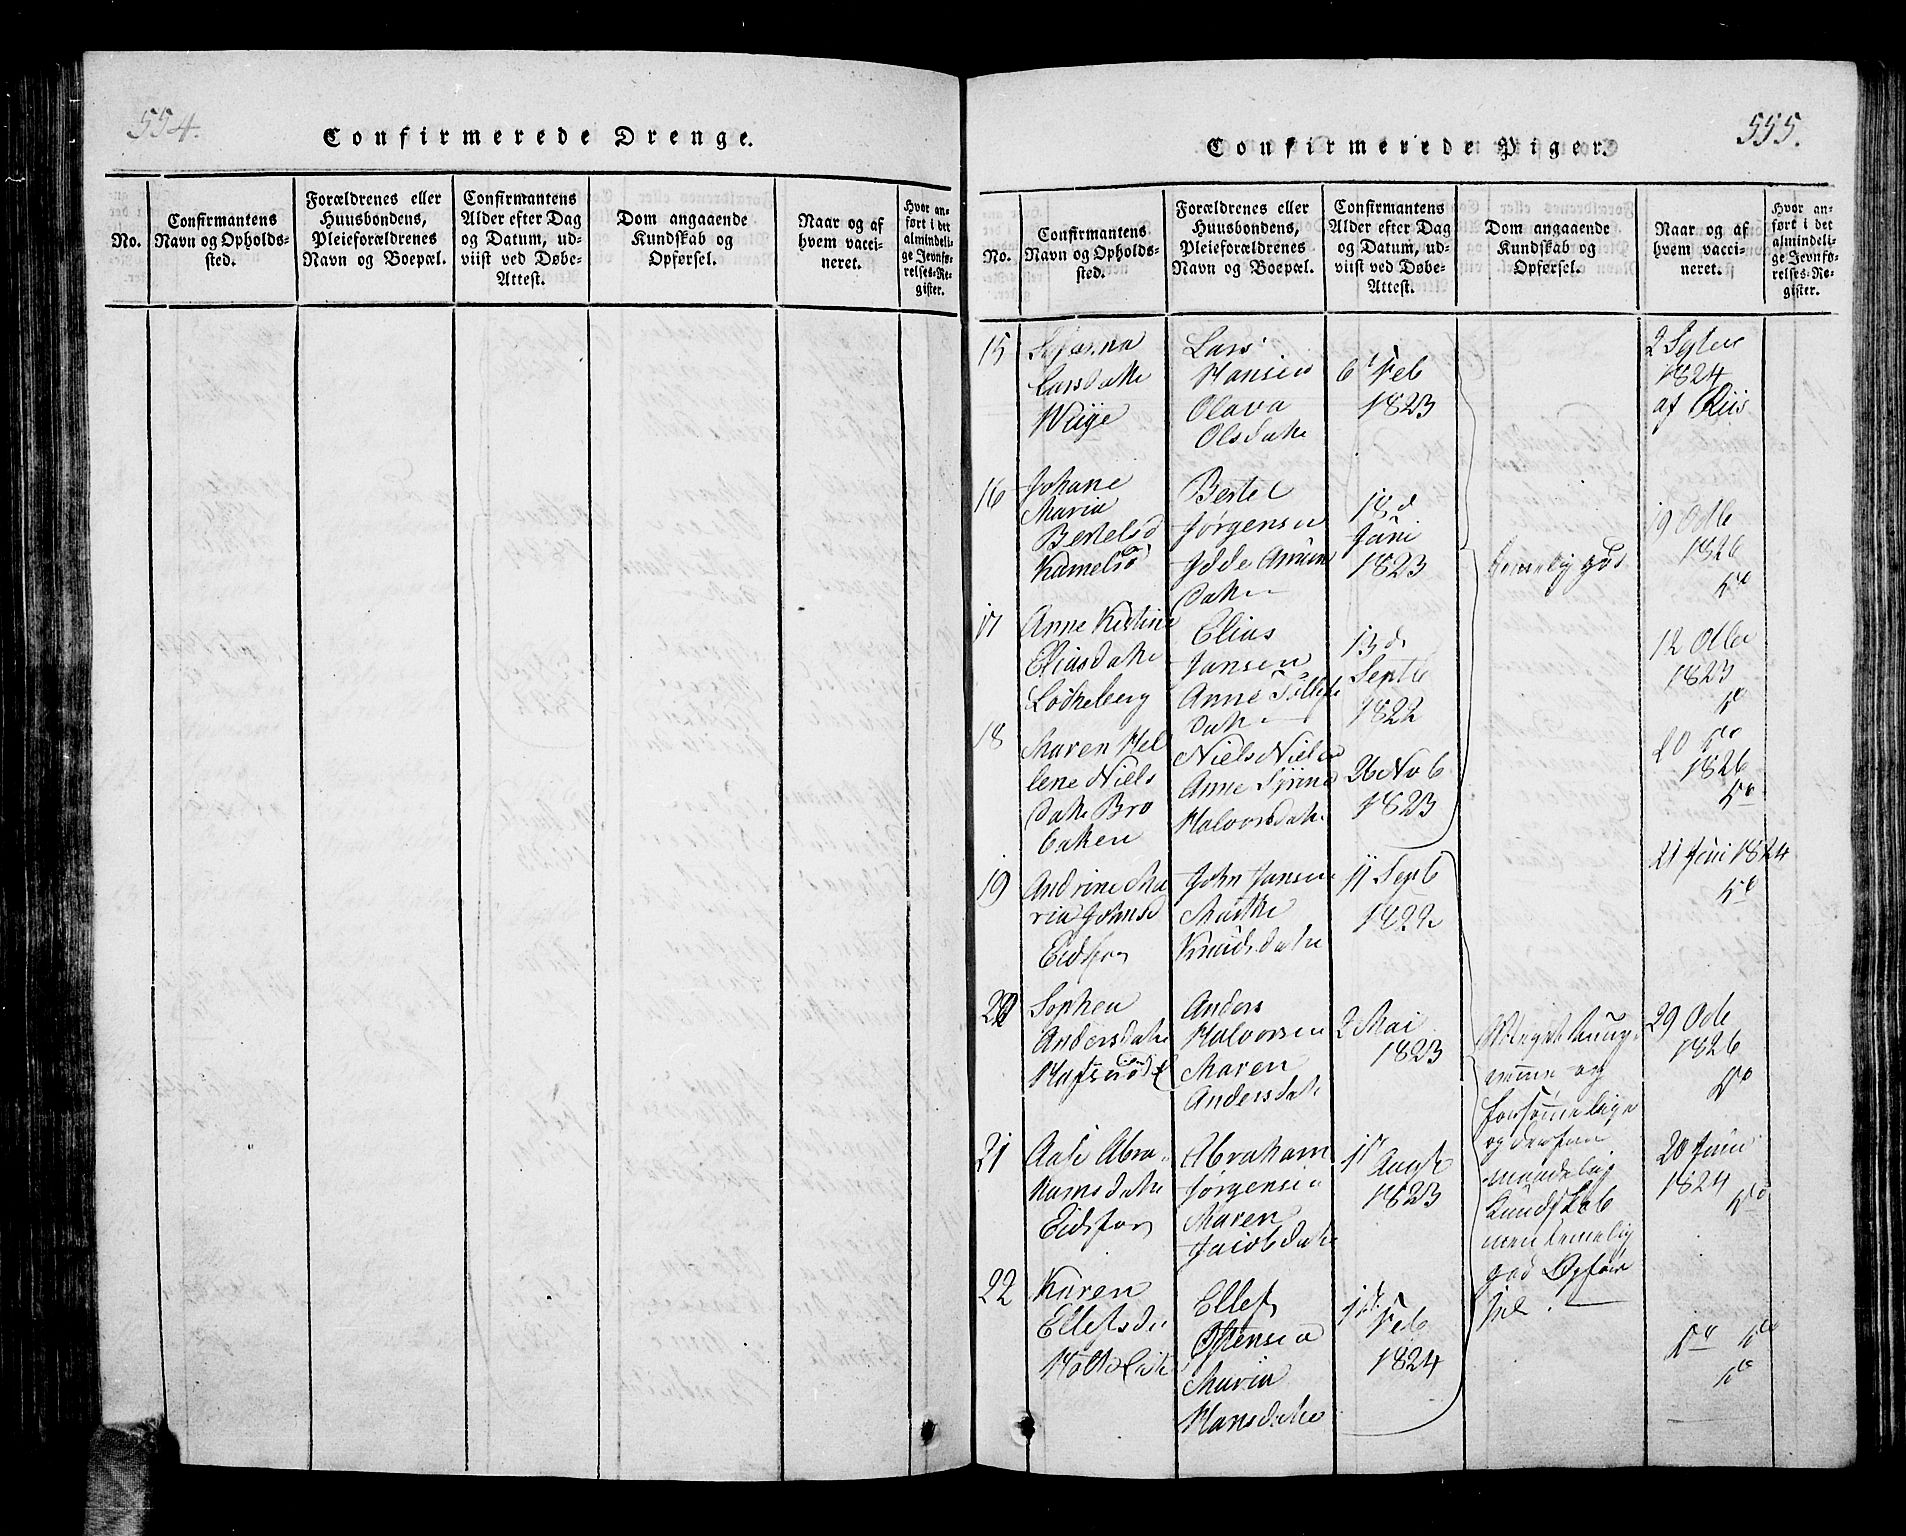 554.
Confirmerede Drenge.
No.
Confirmantens
Navn og Opholds-
sted.
Forældrenes eller
Huusbondens,
Pleieforældrenes
Navn og Boepæl.
Confirmantens
Alder efter Dag
og Datum, ud-
viist ved Døbe-
Attest.
Dom angaaende
Kundskab og
Opførsel.
Naar og af
hvem vacci-
neret.
Hvor an-
ført i det
almindeli-
ge Jevnfø-
relses-Re-
gister.
555.
Confirmerede Piger.
No.
Confirmantens
Navn og Opholds-
sted.
Forældrenes eller
Huusbondens,
Pleieforældrenes
Navn og Boepæl.
Confirmantens
Alder efter Dag
og Datum, ud-
viist ved Døbe-
Attest.
Dom angaaende
Kundskab og
Opførsel.
Naar og af
hvem vacci-
neret.
Hvor an-
ført i det
almindeli-
ge Jevnfø-
relses-Re-
gister.
15
Larsdatte
Lars
Hansen
Olava
Olsdatte
6 Feb
1823
2 Septbr
1824
af Riis
16
Johane
Maria
Bertelsd
Bertel
Jørgensen
datte
18 d
Juni
1823
temelig god
19 Octb
1826
17
Anne Kistine
Eliasdatte
Løkkeberg
Elias
Jansen
Anne
datte
13 d
Septb
1822
12 Octbr
1823
18
Maren Hel
lene Niels
datte Bro
bakken
Niels Niels
Anne
Halvorsdatte
26 Nov
1823
20
1826
19
Andrine Ma
ria Johnsd
Eidsfos
John Jansen
Knudsdatte
11 Septb
1822
21 Juni 1824
20
Sophea
Andersdatte
Anders
Halvorsen
Maren
Andersdatte
2 Mai
1823
og
forsømmelige
og derfor
maadelig
kundskab
men temelig
god Opfør
sel.
29 Octb
1826
21
Abra
hamsdatte
Eidsfos
Abraham
Jørgensen
Maren
Jacobsdatte
17
Augst
1823
20 Juni
1824
22
Karen
Ellefsda
Ellef
Østensen
Maria
Hansdatte
Feb
1824